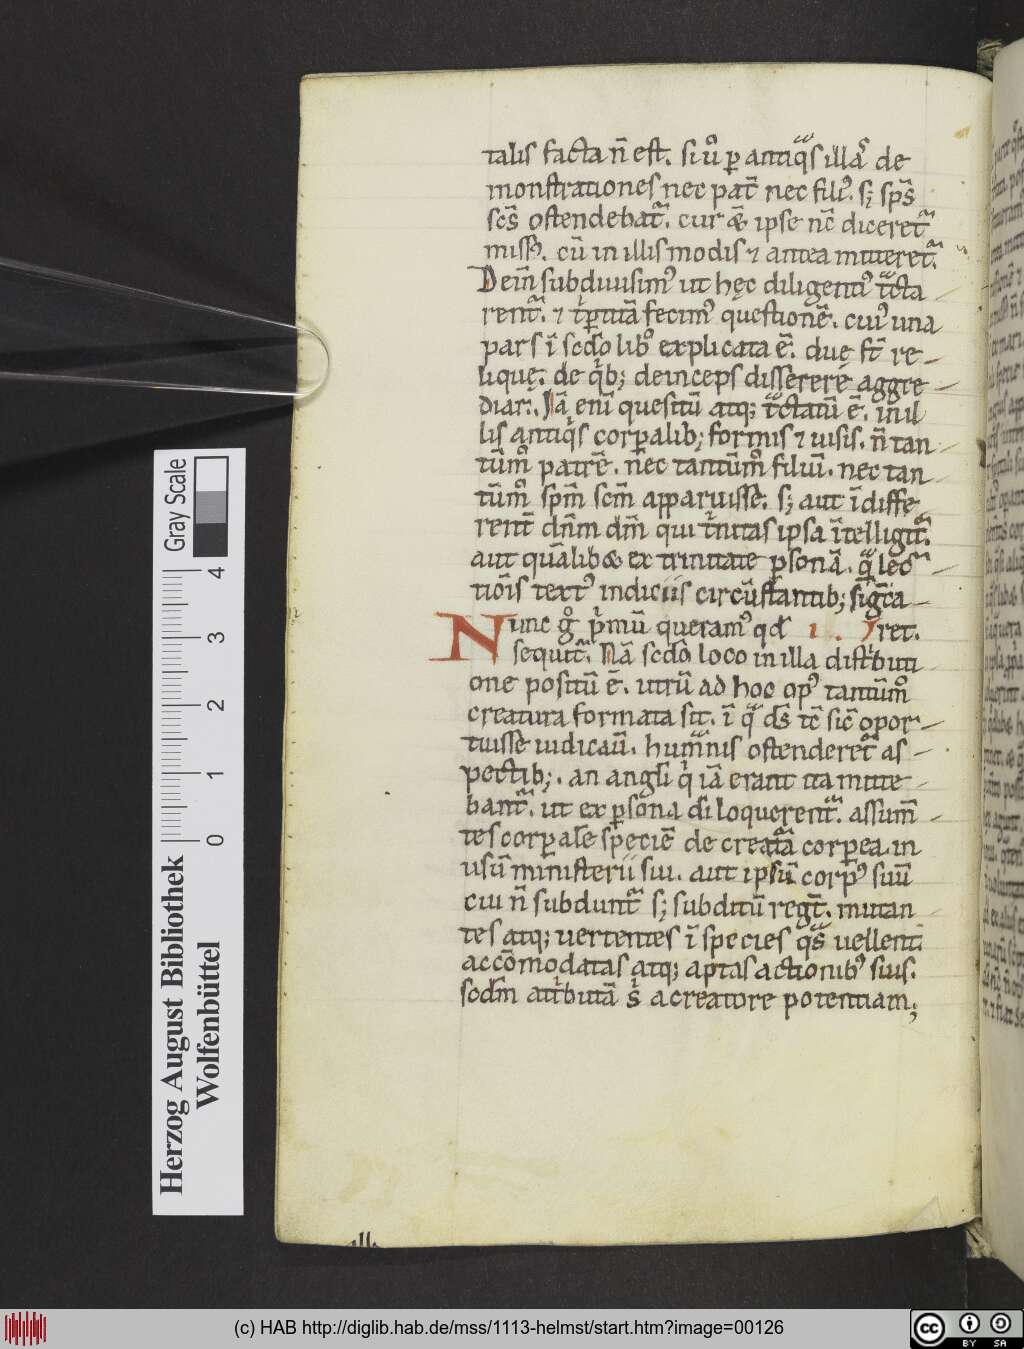 talis facta n̄ est. si ů ꝑ antiqͣs illaſ de
monstrationes nec pat̄ nec filiꝰ. sꝫ spc̄
sc̄s ostendebat̃. cur & ipse nc̄ diceret̃
missꝰ. cū in illis modis ⁊ antea mitteret̃.
Dein̄ subdiuisimꝰ ut hęc diligentiꝰ tͣcta
rent̃. ⁊ tͥꝑtitā fecimꝰ questionē. cuiꝰ una
pars ī scdo libͦ explicata ē. due st̄ re
lique. de qͥbꝫ deinceps disserere aggre
diar. Nā enī quesitū atqꝫ tͣctatū ē. in il
lis antiqͥs corꝑalibꝫ formis ⁊ uisis. n̄ tan
tūmͦ patrē. nec tantūmͦ filiū. nec tan
tūmͦ spm̄ scm̄ apparuisse. sꝫ aut īdiffe
rent̄ dn̄m dm̄ qui tͥnitas ipsa ītelligit̃.
aut quālib& ex trinitate ꝑsonā. qͣ lec
tiōis textꝰ indiciis circūstantibꝫ sig̅ca
Nunc gͦ pͥmū queramꝰ qd̄ 1. ret.
sequit̃. Nā scdo loco in illa distͥbuti
one positū ē. utrū ad hoc opꝰ tantūmͦ
creatura formata sit. ī qͣ ds̄ tc̄ sic̄ opor
tuisse iudicau̅. humͣnis ostenderet̃ as
pectibꝫ. an angli qͥ iā erant ita mitte
bant̃. ut ex ꝑsona di̅ loquerent̃. assum̄
tes corꝑale speciē de creata corꝑea. in
usū ministerii sui. aut ipsū corpꝰ suū
cui n̄ subdunt̃ sꝫ subditū reg̅t. mutan
tes atqꝫ uertentes ī species qͣs uellent
accōmodatas atqꝫ aptas actionibꝰ suis.
scdm̄ attͥbutā sͥ a creatore potentiam;
Herzog August Bibliothek
Wolfenbüttel
0 1 2 3 4
Gray Scale
(c) HAB http://diglib.hab.de/mss/1113-helmst/start.htm?image=00126
cc BY SA